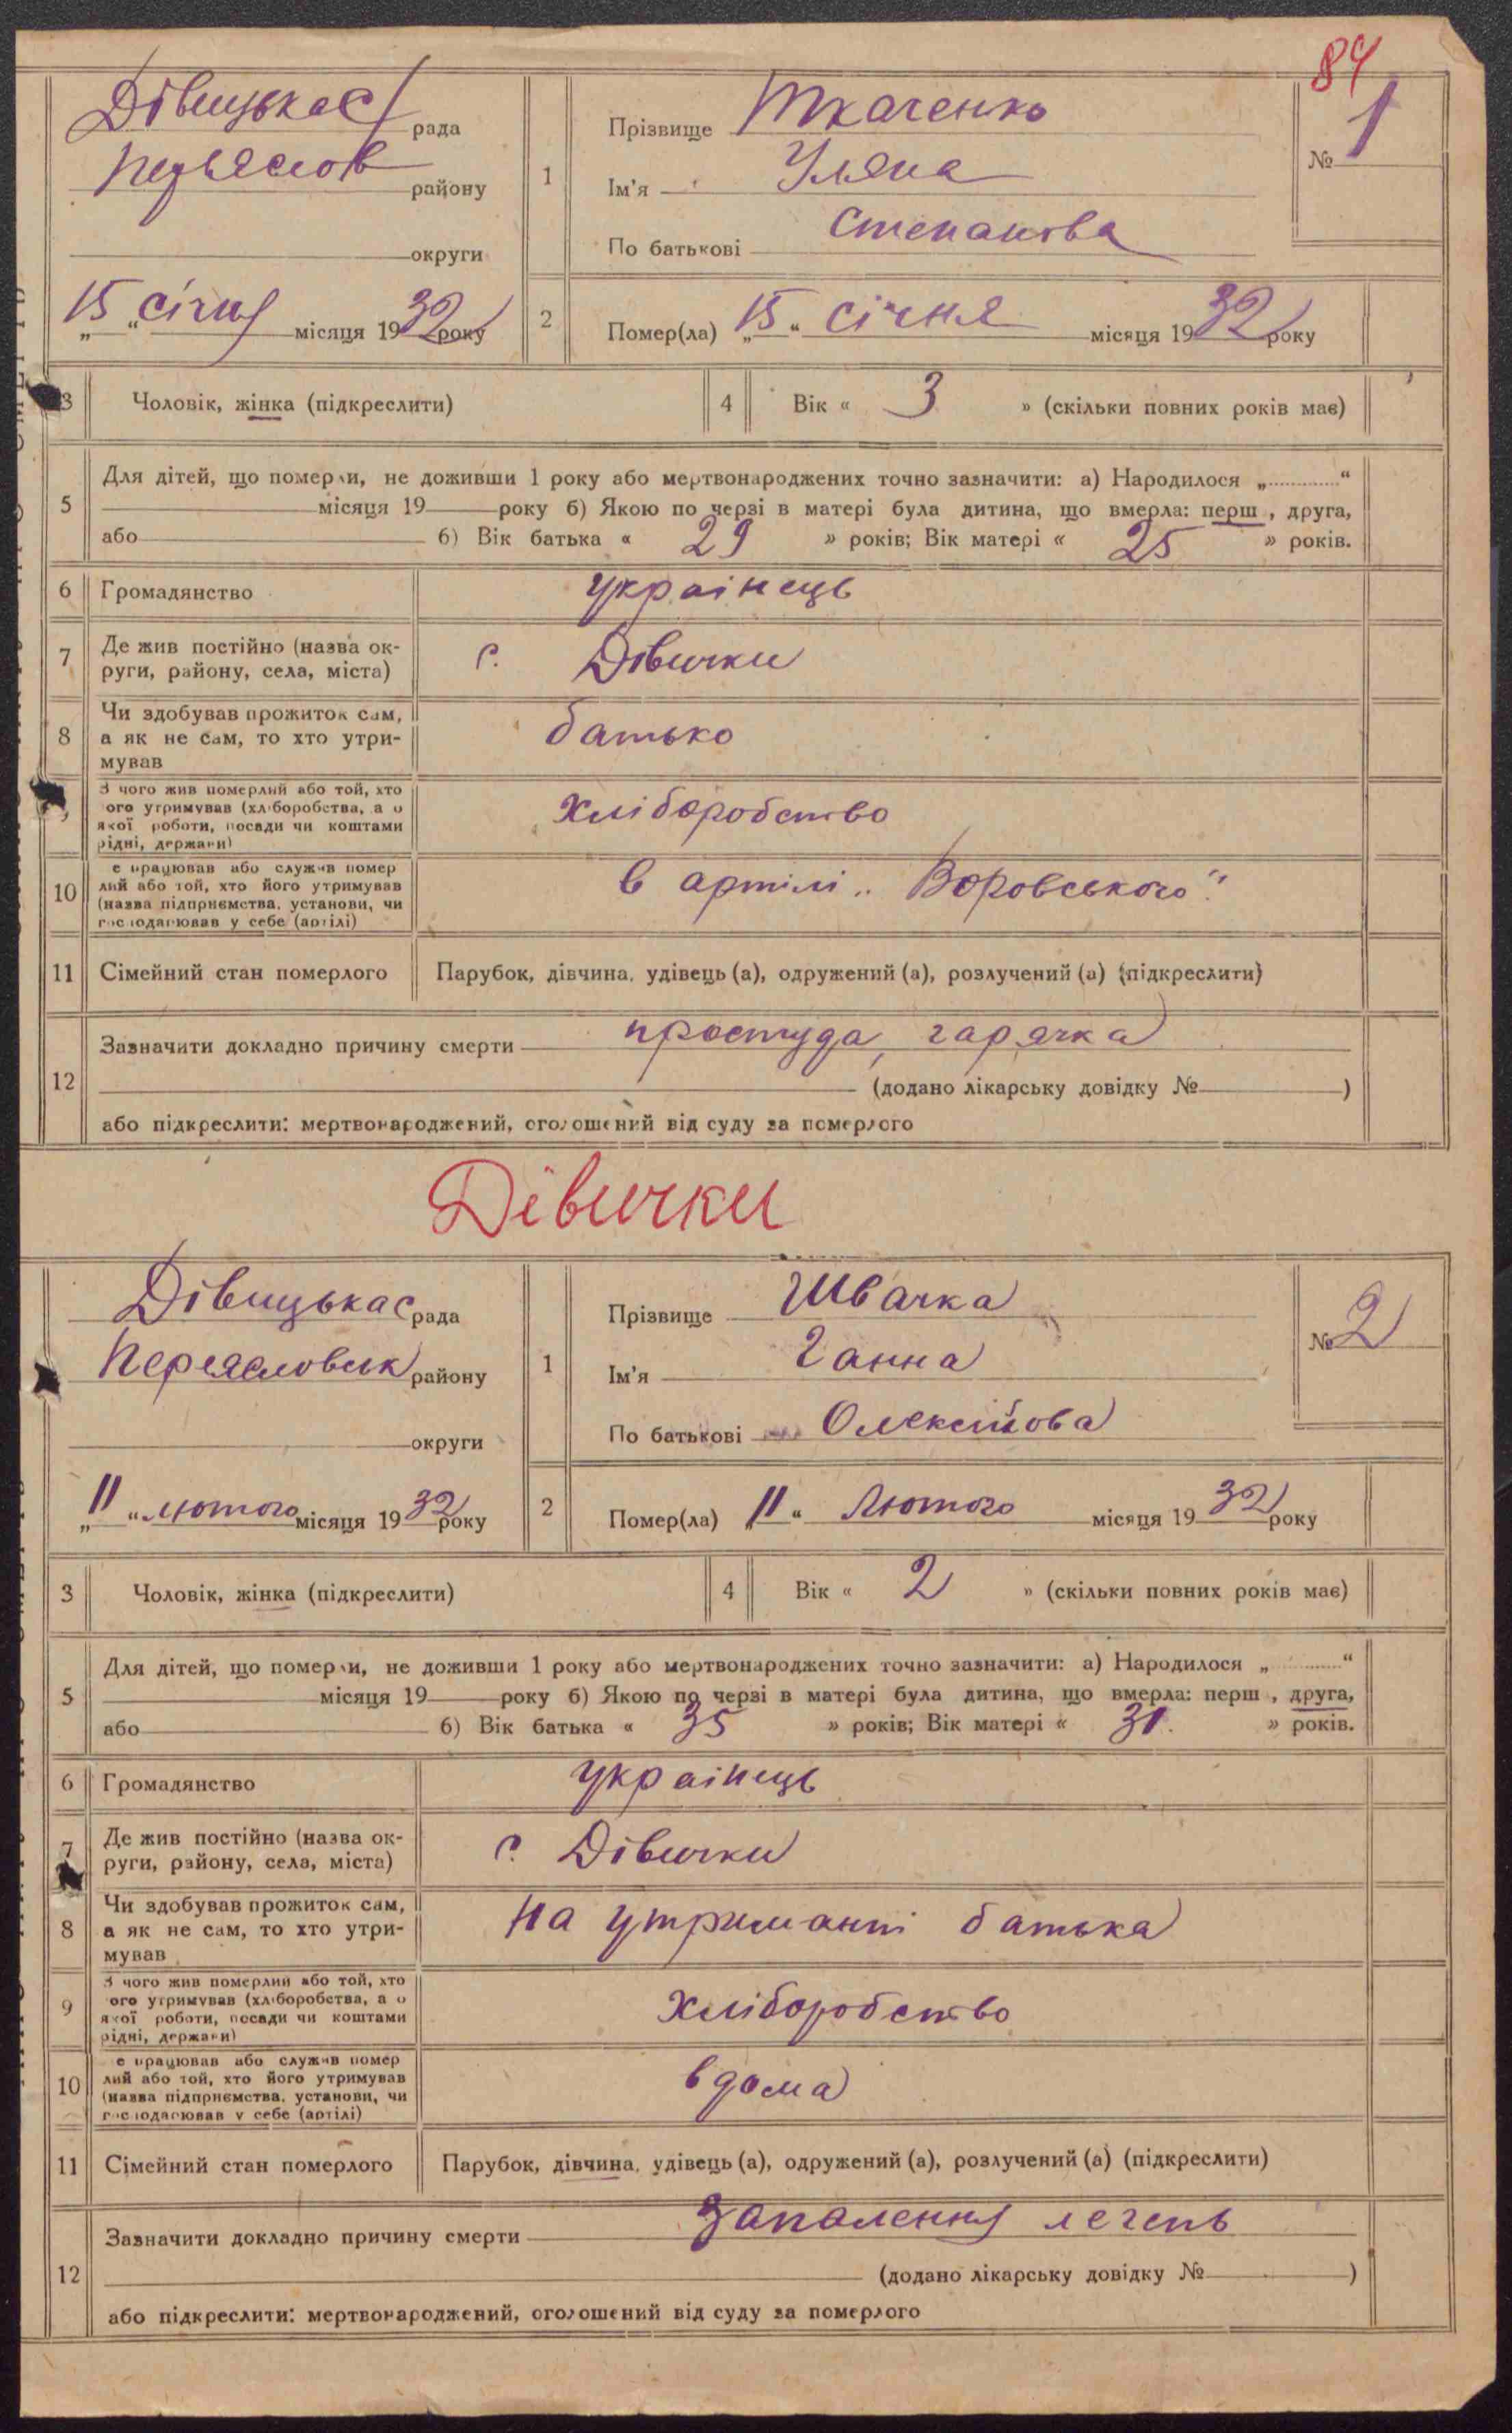 84
Дівицька с/рада
Переяслов району
округи
„15“ січня місяця 1932 року
1
Прізвище Ткаченко
Ім'я Уляна
По батькові Степанова
№ 1
2
Помер(ла) „15“ січня місяця 1932 року
3 Чоловік, жінка (підкреслити)
4 Вік « 3 » (скільки повних років має)
5 Для дітей, що померли, не доживши 1 року або мертвонароджених точно зазначити: а) Народилося „............“
місяця 19 року б) Якою по черзі в матері була дитина, що вмерла: перш , друга,
або б) Вік батька « 29 » років; Вік матері « 25 » років.
6 Громадянство українець
7 Де жив постійно (назва ок-
руги, району, села, міста) с. Дівички
8 Чи здобував прожиток сам,
а як не сам, то хто утри-
мував батько
З чого жив померлий або той, хто
ого утримував (хліборобства, а о
якої роботи, посади чи коштами
рідні, держави) Хліборобство
10 е працював або служив помер
лий або той, хто його утримував
(назва підприємства, установи, чи
господарював у себе (артілі) в артілі „Воровського“
11 Сімейний стан померлого Парубок, дівчина, удівець (а), одружений (а), розлучений (а) (підкреслити)
12 Зазначити докладно причину смерти простуда, гарячка
(додано лікарську довідку № )
або підкреслити: мертвонароджений, оголошений від суду за померлого
Дівички
Дівицька с рада
Переясловськ району
округи
„11“ лютого місяця 1932 року
1
Прізвище Швачка
Ім'я Ганна
По батькові Олексійова
№ 2
2
Помер(ла) „11“ Лютого місяця 1932 року
3 Чоловік, жінка (підкреслити)
4 Вік « 2 » (скільки повних років має)
5 Для дітей, що померли, не доживши 1 року або мертвонароджених точно зазначити: а) Народилося „............“
місяця 19 року б) Якою по черзі в матері була дитина, що вмерла: перш , друга,
або б) Вік батька « 35 » років; Вік матері « 31. » років.
6 Громадянство українець
7 Де жив постійно (назва ок-
руги, району, села, міста) с. Дівички
8 Чи здобував прожиток сам,
а як не сам, то хто утри-
мував На утриманні батька
9 З чого жив померлий або той, хто
ого утримував (хліборобства, а о
якої роботи, посади чи коштами
рідні, держави) Хліборобство
10 е працював або служив помер
лий або той, хто його утримував
(назва підприємства, установи, чи
господарював у себе (артілі) вдома
11 Сімейний стан померлого Парубок, дівчина, удівець (а), одружений (а), розлучений (а) (підкреслити)
12 Зазначити докладно причину смерти Запалення легень
(додано лікарську довідку № )
або підкреслити: мертвонароджений, оголошений від суду за померлого